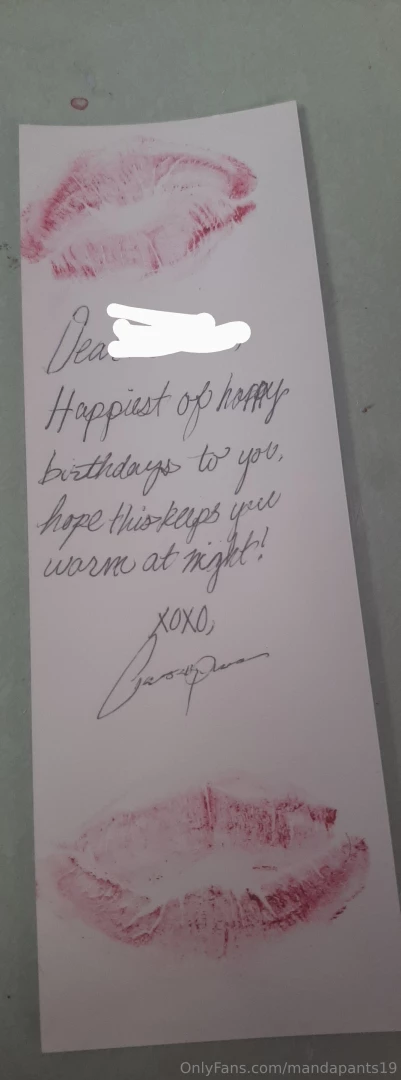 Dear
Happiest of happy
birthdays to you,
hope this keeps you
warm at night!
XOXO,
OnlyFans.com/mandapants19